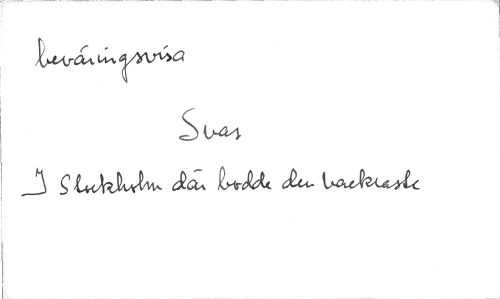 beväringsvisa
Svar
I Stockholm där bodde den vackraste